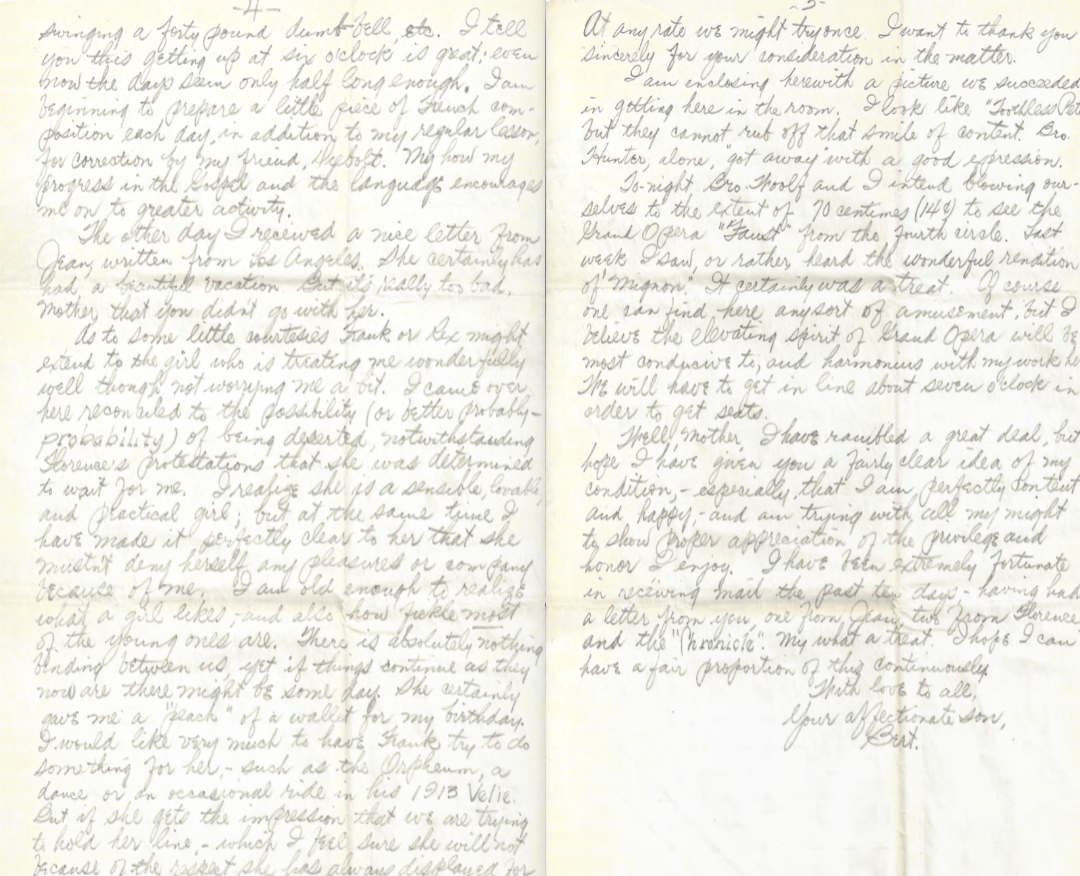 -4-
swinging a forty pound dumb-bell, etc. I tell
you this getting up at six o'clock is great; even
now the days seem only half long enough. I am
beginning to prepare a little piece of French com-
position each day, in addition to my regular lesson,
for correction by my friend, My how my
progress in the Gospel and the language encourages
me on to greater activity.
The other day I received a nice letter from
Jean, written from Los Angeles. She certainly has
had a beautiful vacation. But it's really too bad,
Mother that you didn't go with her.
As to some little courtesies Frank or Rex might
extend to the girl who is treating me wonderfully
well though not worrying me a bit. I came over
here reconciled to the possibility (or better probably-
probability) of being deserted, notwithstanding
Florence's protestations that she was determined
to wait for me. I realize she is a sensible, lovable,
and practical girl; but at the same time I
have made it perfectly clear to her that she
mustn't deny herself any pleasures or company
because of me. I am old enough to realize
what a girl likes,- and also how fickle most
of the young ones are. There is absolutely nothing
binding between us, yet if things continue as they
now are there might be some day. She certainly
gave me a "peach" of a wallet for my birthday.
I would like very much to have Frank try to do
something for her,- such as the Orpheum, a
dance or an occasional ride in his 1913 Velie.
But if she gets the impression that we are trying
to hold her line,- which I feel sure she will not
because of the respect she has always displayed for
-5-
At any rate we might try once. I want to thank you
sincerely for your consideration in the matter.
I am inclosing herewith a picture we succeeded
in getting here in the room. I look like "Toothless
but they cannot rub off that smile of content. Bro.
Hunter, alone, "got away" with a good expression.
To-night Bro. Woolf and I intend blowing our-
selves to the extent of 70 centimes (14¢) to see the
Grand Opera "Faust" from the fourth circle. Last
week I saw, or rather, heard the wonderful rendition
of "Mignon." It certainly was a treat. Of course
one can find here any sort of amusement, but I
believe the elevating spirit of Grand Opera will be
most conducive to, and harmonius with my work
We will have to get in line about seven o'clock in
order to get seats.
Well Mother, I have rambled a great deal, but
hope I have given you a fairly clear idea of my
condition,- especially, that I am, perfectly content
and happy,- and am trying with all my might
to show proper appreciation of the privilege and
honor I enjoy. I have been extremely fortunate
in receiving mail the past ten days - having had
a letter from you, one from Jean, two from Florence
and the "Chronicle". My what a treat. I hope I can
have a fair proportion of this continuously.
With love to all,
Your affectionate son,
Bert.